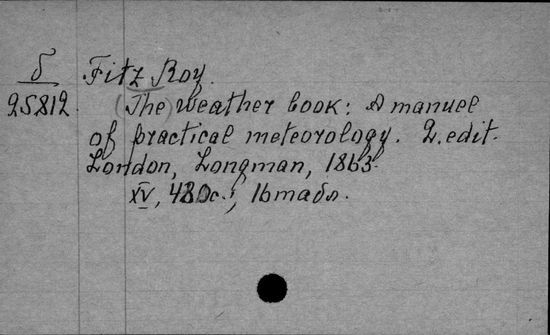 δ Fitz Roy.
25812 (The) weather book: A manuel
of practical meteorology. 2. edit.
London, Longman, 1863.
XV, 480 с., 16 табл.